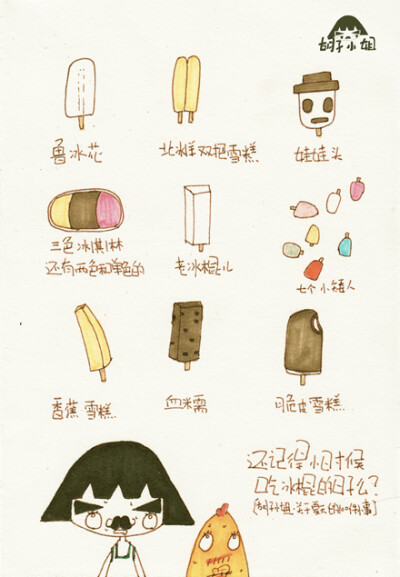 胡子小姐
鲁冰花
北冰洋双棒雪糕
娃娃头
三色冰淇淋
还有两色和单色的
老冰棍儿
七个小矮人
香蕉雪糕
血糯
脆皮雪糕
还记得小时候
吃冰棍的日子么?